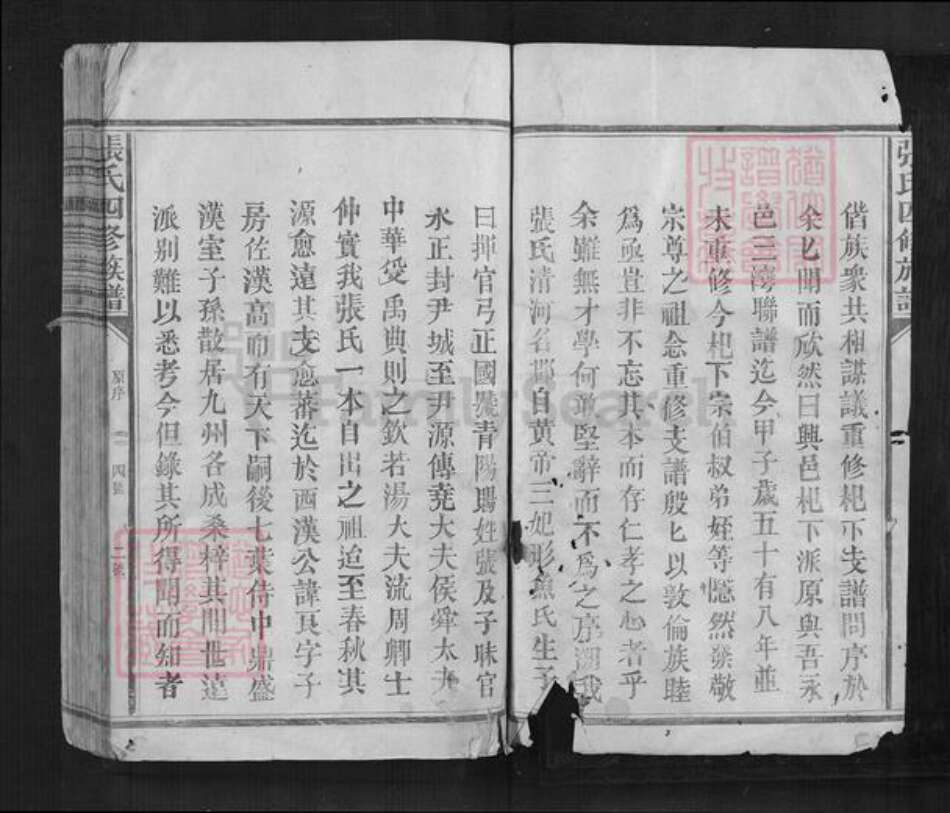 偕族衆共相謀議重修杞下支譜問序於
余匕聞而欣然曰興邑杞下派原與吾永
邑三灣聯譜迄今甲子歲五十有八年並
未重修今杞下宗伯叔弟姪等慨然發敬
宗尊之祖念重修支譜殷匕以敦倫族睦
爲亟豈非不忘其本而存仁孝之心者乎
余雖無才學何敢堅辭而不爲之序溯我
張氏清河名郡自黃帝三妃彤魚氏生子
曰揮官弓正國號青陽賜姓張及子昧官
水正封尹城至尹源傳堯大夫侯舜太夫
中華受禹典則之欽若湯大夫流周卿士
仲實我張氏一本自出之祖迨至春秋其
源愈遠其支愈蕃迄於西漢公諱良字子
房佐漢高而有天下嗣後七葉侍中鼎盛
漢室子孫散居九州各成桑梓其間世遠
派别難以悉考今但錄其所得聞而知者
張氏四修族譜
原序
四號
二號
張氏四修族譜